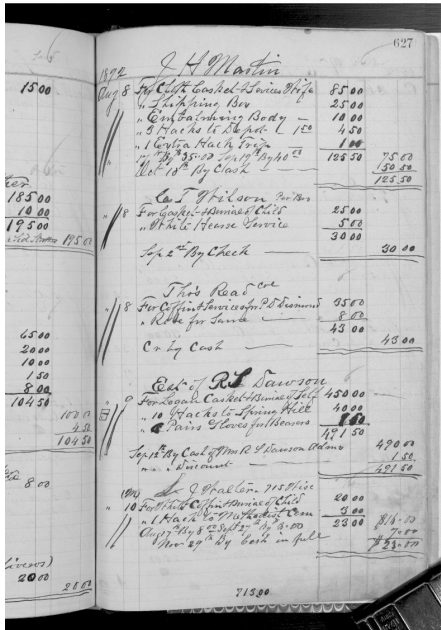 15 00
185 00
10 00
195 00
195 00
65 00
20 00
10 00
1 50
8 00
104 50
100 00
4 50
104 50
8 00
20 00
20 00
627
1892 J H Martin
Aug 8 For Cloth Casket & Services Wife 85 00
" Shipping Box 25 00
" Embalming Body 10 00
" 3 Hacks to Depot 1 50 4 50
" 1 Extra Hack Trip 1 00
35.00 Sep 19th By 40 00 125 50 75 00
Oct 18th By Cash 50 50
125 50
Wilson
" 8 For Casket & Burial of Child 25 00
" White Hearse Service 5 00
30 00
Sep 2nd By Check 30 00
Thos Read Col
" 8 For Coffin & Services for P D Desmond 35 00
" Robe for Same 8 00
43 00
Cr by Cash 43 00
Est of R S Dawson
" 9 For Logan Casket & Burial of Self 450 00
" 10 Hacks to Spring Hill 40 00
" Pairs Gloves for Bearers 1 50
491 50
Sep 12th By Cash of Mrs R S Dawson Admx 490 00
" " Discount 1 50
491 50
J. Walter 715
" 10 For White Coffin & Burial of Child 20 00
" 1 Hack to Methodist Cem 3 00
Aug 17th By 8 00 Sept 27th By 8.00 23 00 $16.00
Nov 29th By Cash in full 7.00
$23.00
715.00